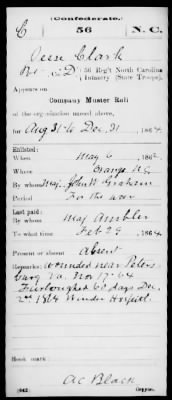 (Confederate.)
C 56 N.C.
Clark
Co. D, 56 Reg't North Carolina
Infantry (State Troops).
Appears on
Company Muster Roll
of the organization named above,
for Aug 31 to Dec. 31, 1864.
Enlisted:
When May 6, 1862
Where Orange N.C.
By whom Maj. John W. Graham
Period For the war
Last paid:
By whom Maj Ambler
To what time Feb 29, 1864
Present or absent Absent
Remarks: Wounded near Peters-
burg Va. Nov 17" 64
Furloughed 60 days Dec.
2nd 1864 Winder Hospital.
Book mark:
(642) A C Black
Copyist.